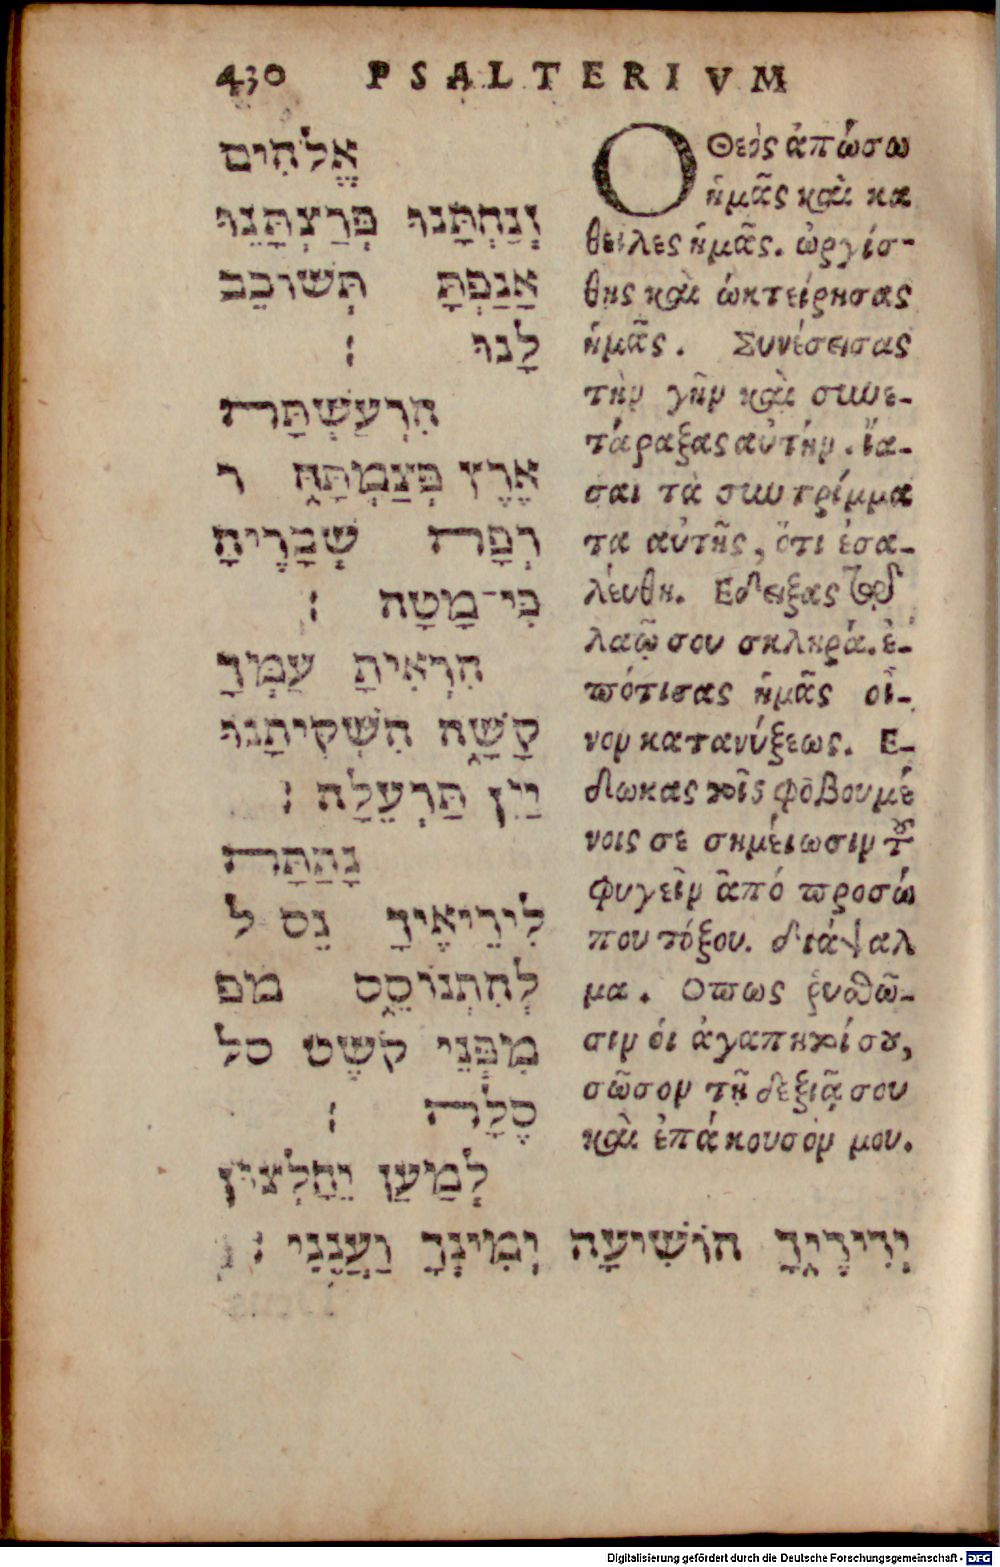 430 PSALTERIVM
אֱלֹהִים
זְנַחְתָּנוּ פְּרַצְתָּנוּ
אָנַפְתָּ תְּשׁוֹבֵב
לָנוּ ׃
הִרְעַשְׁתָּה
אֶרֶץ פְּצַמְתָּהּ ר
רְפָה שְׁבָרֶיהָ
כִּי־מָטָה ׃
הִרְאִיתָ עַמְּךָ
קָשָׁה הִשְׁקִיתָנוּ
יַיִן תַּרְעֵלָה ׃
נָתַתָּה
לִּירֵיאֶיךָ נֵּס ל
לְהִתְנוֹסֵס מפ
מִפְּנֵי קֹשֶׁט סל
סֶלָה ׃
לְמַעַן יֵחָלְצוּן
יְדִידֶיךָ הוֹשִׁיעָה יְמִינְךָ וַעֲנֵנִי ׃
Ο Θεὸς ἀπώσω
ἡμᾶς καὶ κα
θεῖλες ἡμᾶς. ὠργίσ-
θης καὶ ᾠκτείρησας
ἡμᾶς. Συνέσεισας
τὴν γῆν καὶ συνε-
τάραξας αὐτήν. ἴα-
σαι τὰ συντρίμμα
τα αὐτῆς, ὅτι ἐσα-
λεύθη. Εδειξας τῷ
λαῷ σου σκληρά. ἐ-
πότισας ἡμᾶς οἶ-
νον κατανύξεως. Ε-
δωκας τοῖς φοβουμέ
νοις σε σημείωσιν τοῦ
φυγεῖν ἀπό προσώ
που τόξου. διάψαλ
μα. Οπως ῥυσθῶ-
σιν οἱ ἀγαπητοί σου,
σῶσον τῇ δεξιᾷ σου
καὶ ἐπάκουσόν μου.
Digitalisierung gefördert durch die Deutsche Forschungsgemeinschaft - DFG